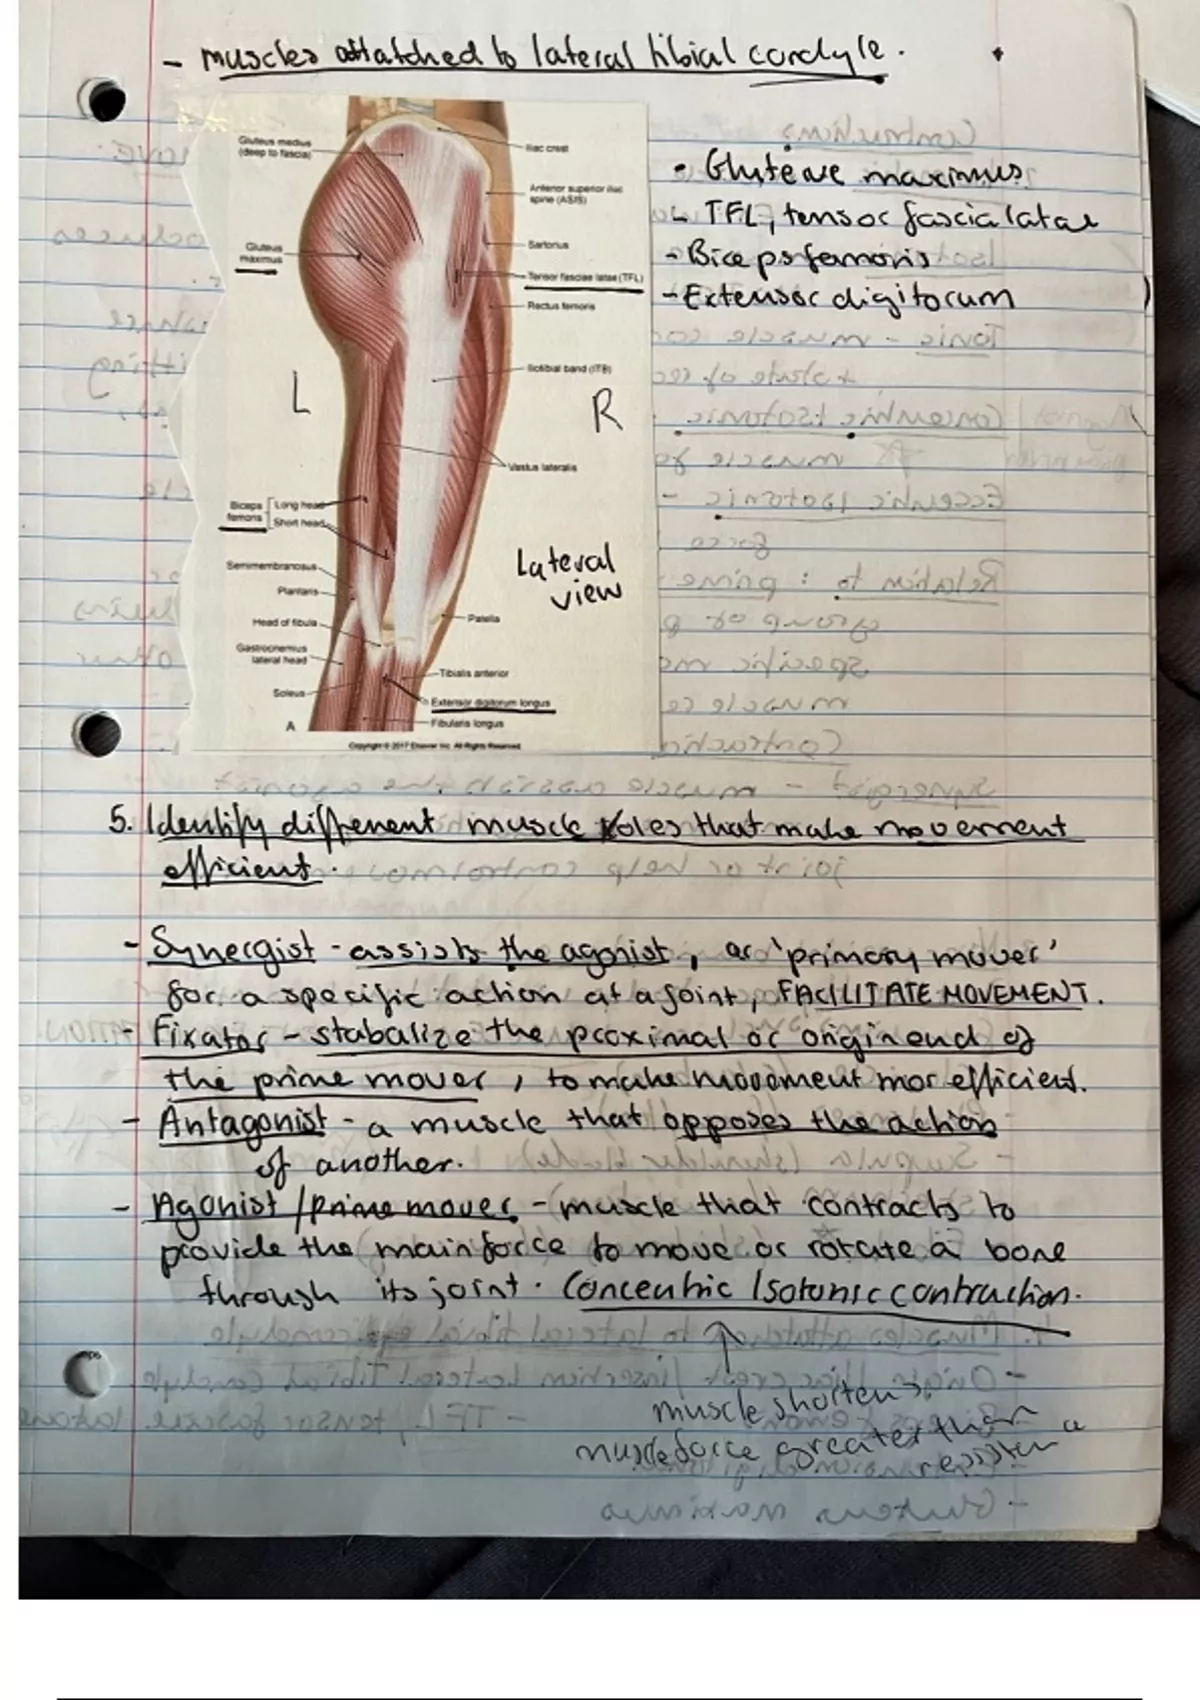 - muscles attatched to lateral tibial condyle.
Gluteus medius
(deep to fascia)
Iliac crest
Anterior superior iliac
spine (ASIS)
Gluteus
maximus
Sartorius
Tensor fasciae latae (TFL)
Rectus femoris
Iliotibial band (ITB)
L
R
Vastus lateralis
Biceps
femoris
Long head
Short head
Lateral
view
Semimembranosus
Plantaris
Head of fibula
Patella
Gastrocnemius
lateral head
Tibialis anterior
Soleus
Extensor digitorum longus
Fibularis longus
A
Copyright © 2017 Elsevier Inc. All Rights Reserved.
- Gluteue maximus
- TFL, tensor fascia latae
- Biceps femoris
- Extensor digitorum
5. Identify different muscle roles that make movement
efficient.
- Synergist - assists the agonist, or 'primary mover'
for a specific action at a joint, FACILITATE MOVEMENT.
- Fixator - stabalize the proximal or origin end of
the prime mover, to make movement mor efficient.
- Antagonist - a muscle that opposes the action
of another.
- Agonist / prime mover - muscle that contracts to
provide the main force to move or rotate a bone
through its joint. Concentric Isotonic contraction.
muscle shortens,
muscle force greater than